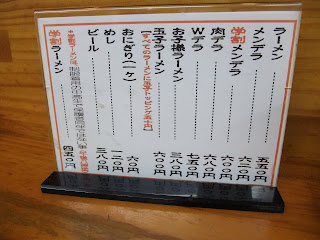 ラーメン 五五〇円
メンデラ 六二〇円
学割メンデラ 六〇〇円
肉デラ 六八〇円
Wデラ 七五〇円
お子様ラーメン 三八〇円
玉子ラーメン 六〇〇円
【すべてのラーメンに玉子トッピング五十円】
おにぎり(一ヶ) 六〇円
めし 一二〇円
ビール 三八〇円
学割ラーメン 四五〇円